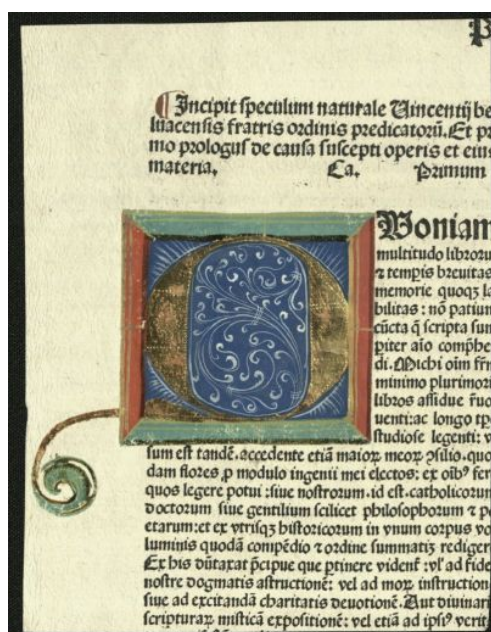 P
¶ Incipit speculum naturale Vincentij be
luacensis fratris ordinis predicatorũ. Et pri
mo prologus de causa suscepti operis et eius
materia. Ca. Primum
QVoniam
multitudo libroru
⁊ temꝑis breuitas
memorie quoqꝫ la
bilitas : nõ patiun
cũcta q̃ scripta sun
piter aĩo comp̃he
di. Michi oĩm fr̃m
minimo plurimor
libros assidue r̃uo
uenti: ac longo tp̃
studiose legenti: v
sum est tandẽ. accedente etiã maioꝝ meoꝝ ↄ̃silio. quo
dam flores ꝓ modulo ingenii mei electos: ex oĩbꝰ fer
quos legere potui : siue nostrorum. id est. catholicorum
doctorum siue gentilium scilicet philosophorum ⁊ po
etarum: et ex vtrisqꝫ historicorum in vnum corpus vo
luminis quodã compẽdio ⁊ ordine summatiꝫ rediger
Ex his dũtaxat p̃cipue que ꝑtinere vident̃: vl̓ ad fide
nostre dogmatis astructionẽ: vel ad moꝝ instruction
siue ad excitandã charitatis deuotionẽ. Aut diuinar
scripturaꝝ misticã expositionẽ: vel etiã ad ipsiꝰ verit